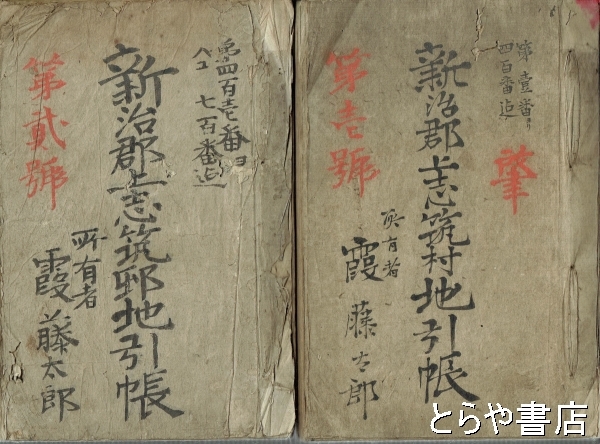 肇
第壱番ヨリ
四百番迄
新治郡上志筑村地引帳
第壱號
所有者
霞藤太郎
第四百壱番ヨリ
七百番迄
新治郡上志筑邨地引帳
第貳號
所有者
霞藤太郎
とらや書店